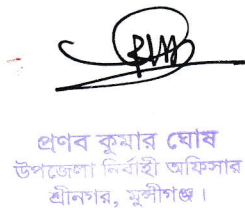 প্রণব কুমার ঘোষ
উপজেলা নির্বাহী অফিসার
শ্রীনগর, মুন্সীগঞ্জ।